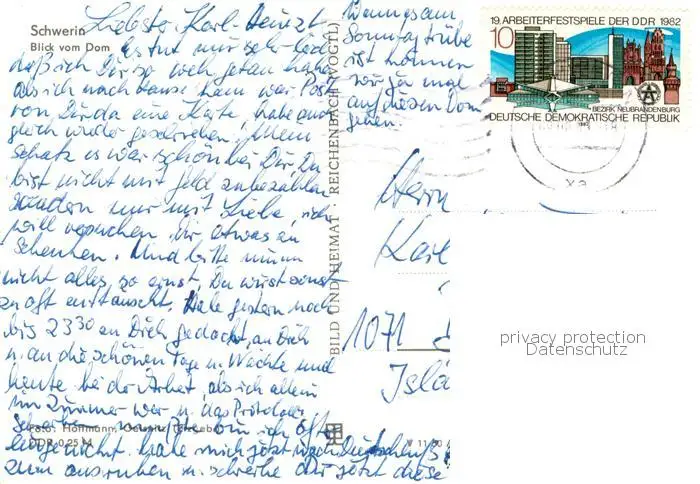 Schwerin
Blick vom Dom
Liebster Karl-Heinz!
Es tut mir sehr leid
daß ich Dir so weh getan habe
als ich nach Hause kam war Post
von Dir da eine Karte, habe auch
gleich wieder geschrieben. Mein
Schatz es war schön bei Dir, Du
bist nicht mit Geld zu bezahlen
sondern nur mit Liebe, ich
will versuchen Dir etwas zu
schenken. Und bitte nimm
nicht alles so ernst. Du wirst sonst
zu oft enttäuscht. Habe gestern noch
bis 23³⁰ an Dich gedacht, an Dich
u. an die schönen Tage u. Nächte und
heute bei der Arbeit, als ich allein
im Zimmer war u. das Protokoll
schreiben mußte bin ich oft
eingenickt. habe mich jetzt nach Dienstschluß
zum ausruhen u. schreibe Dir jetzt diese
Foto: Hoffmann,
DDR 0,25 M
BILD UND HEIMAT REICHENBACH (VOGTL)
V 11 50
Wenn es am
Sonntag trübe
ist können
wir ja mal
auf diesen Dom
gehen.
19. ARBEITERFESTSPIELE DER DDR 1982
10
BEZIRK NEUBRANDENBURG
DEUTSCHE DEMOKRATISCHE REPUBLIK
Herrn
Karl
1071
Islä
privacy protection
Datenschutz